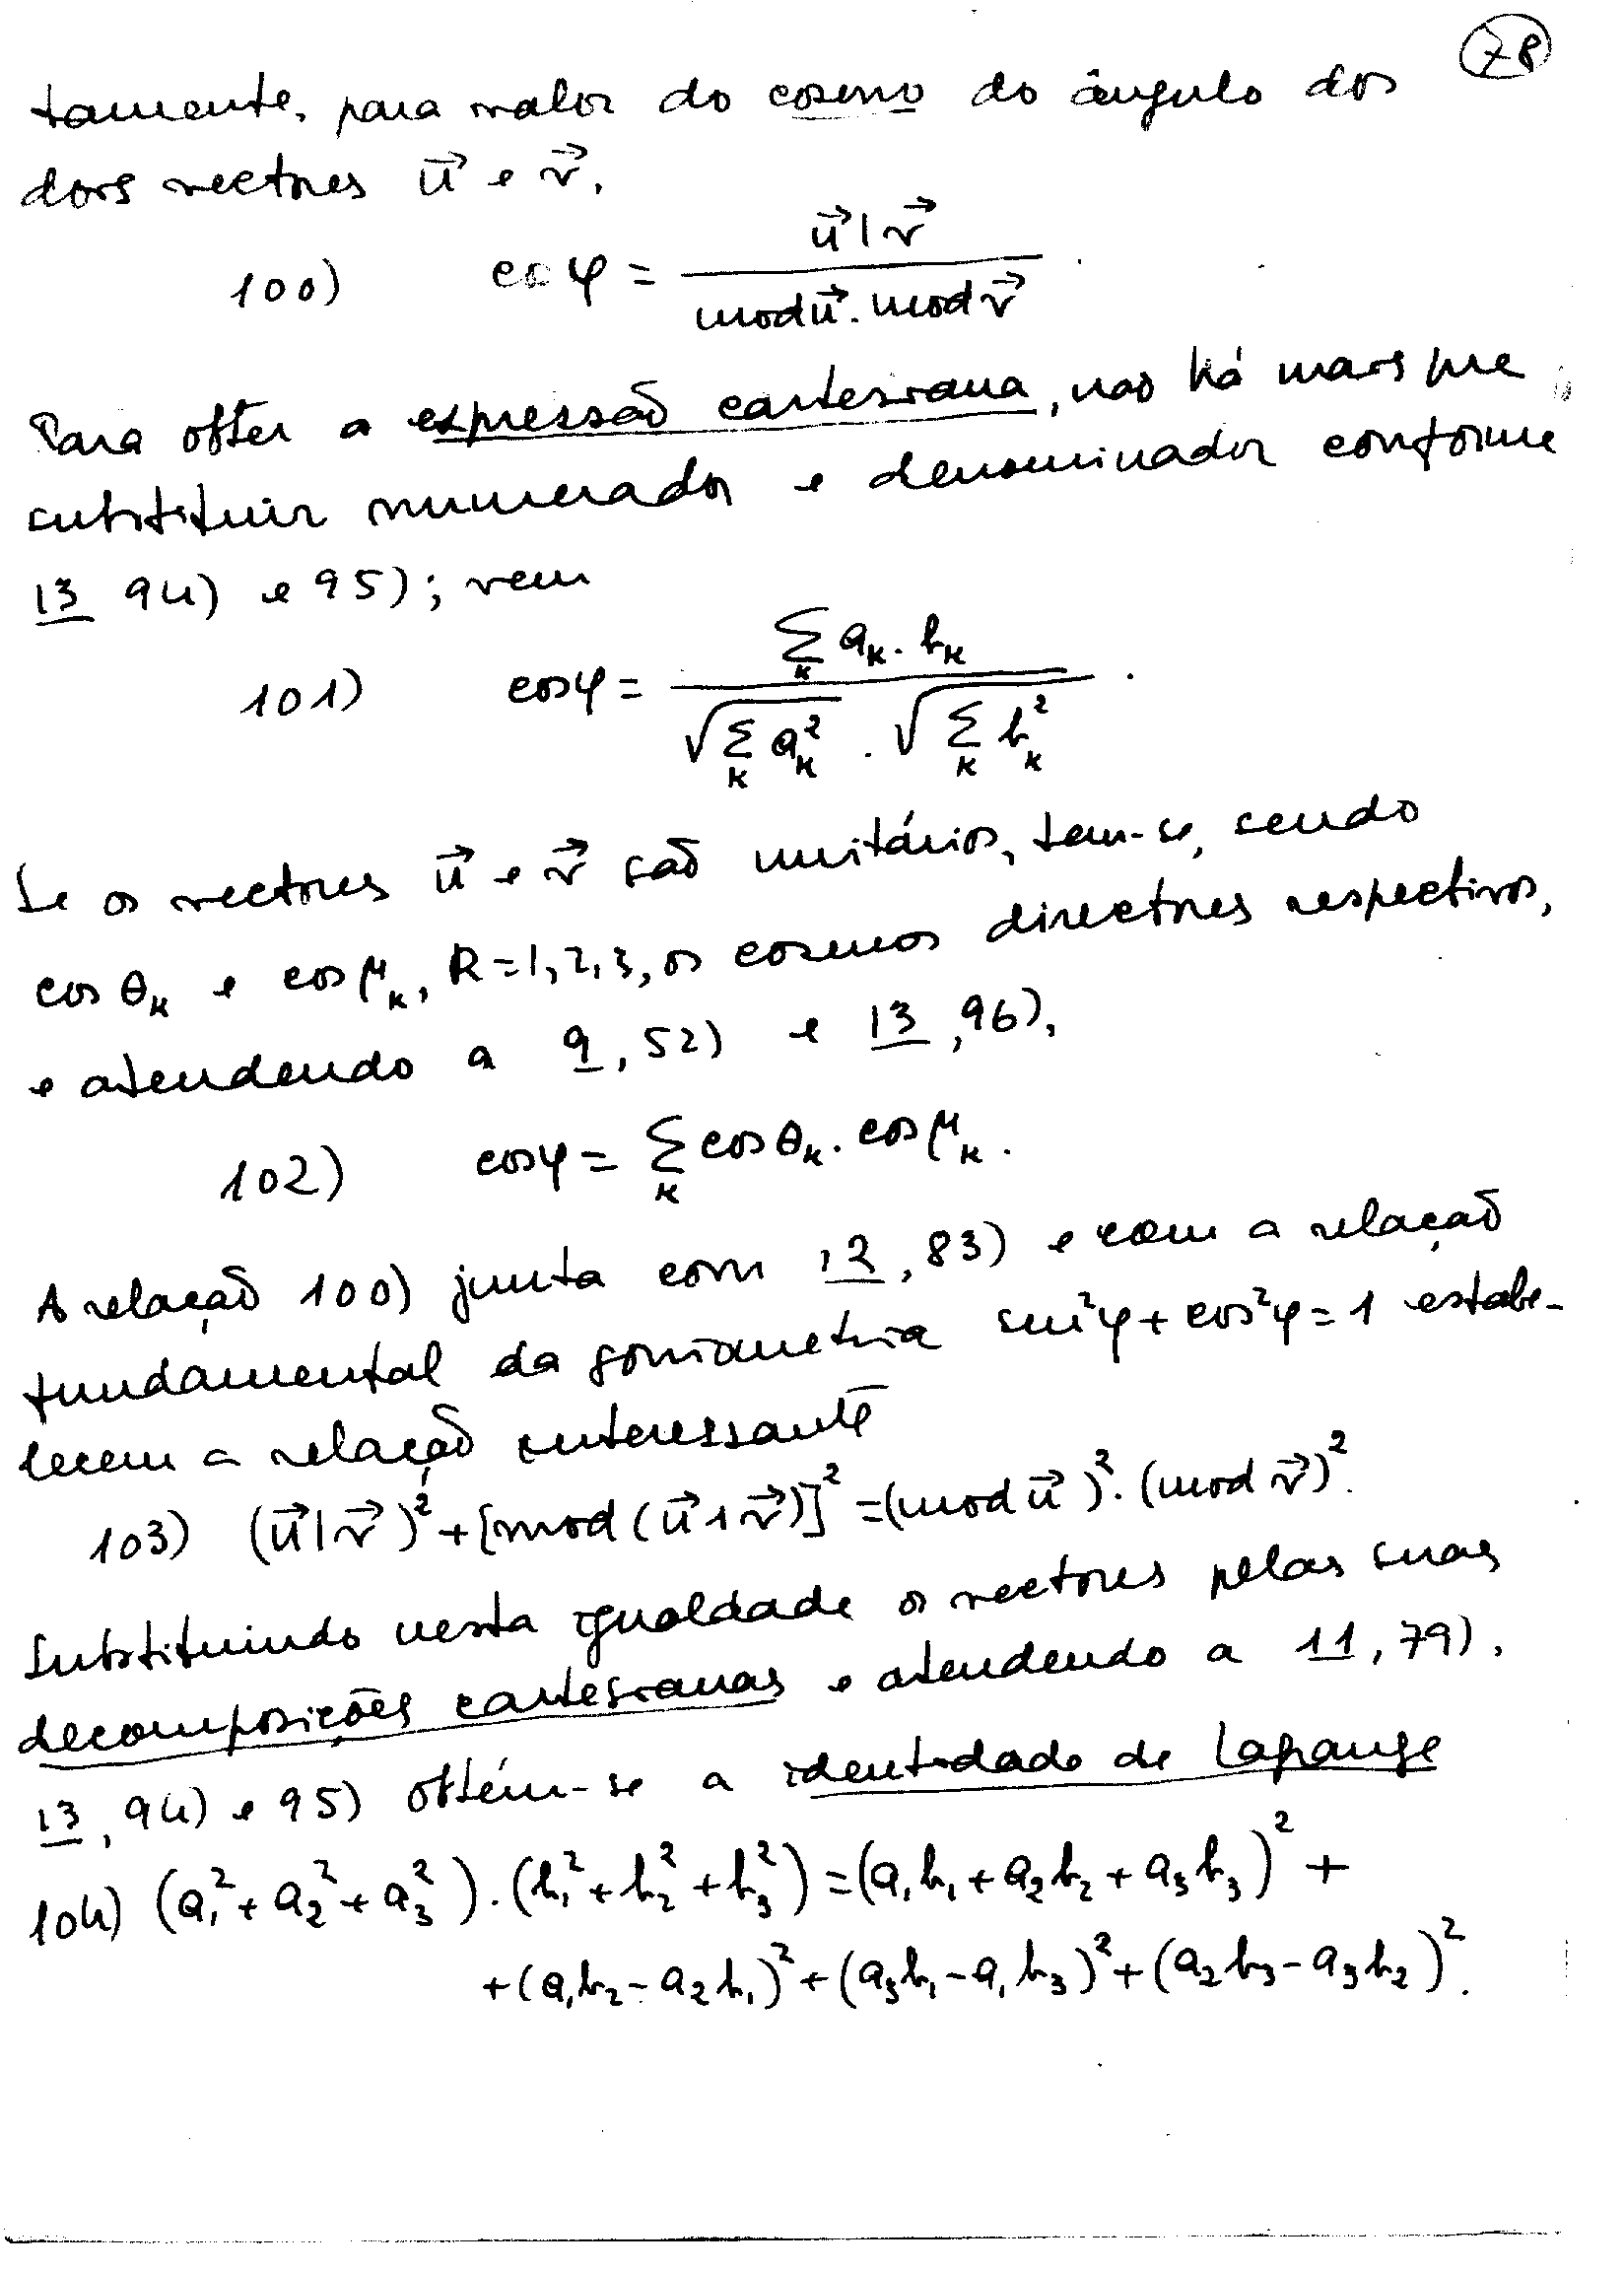 78
tamente, para valor do coseno do ângulo dos
dois vectores u⃗ e v⃗,
100) cos φ = (u⃗ | v⃗) / (mod u⃗ . mod v⃗) .
Para obter a expressão cartesiana, não há mais que
substituir numerador e denominador conforme
13 94) e 95); vem
101) cos φ = (∑_k a_k . b_k) / (√(∑_k a_k²) . √(∑_k b_k²)) .
Se os vectores u⃗ e v⃗ são unitários, tem-se, sendo
cos θ_k e cos μ_k, k=1,2,3, os cosenos directores respectivos,
e atendendo a 9, 52) e 13, 96),
102) cos φ = ∑_k cos θ_k . cos μ_k .
A relação 100) junta com 12, 83) e com a relação
fundamental da goniometria sen²φ + cos²φ = 1 estabe-
lecem a relação interessante
103) (u⃗ | v⃗)² + [mod (u⃗ ∧ v⃗)]² = (mod u⃗)² . (mod v⃗)².
Substituindo nesta igualdade os vectores pelas suas
decomposições cartesianas e atendendo a 11, 79),
13, 94) e 95) obtém-se a identidade de Lagrange
104) (a₁² + a₂² + a₃²) . (b₁² + b₂² + b₃²) = (a₁b₁ + a₂b₂ + a₃b₃)² +
+ (a₁b₂ - a₂b₁)² + (a₃b₁ - a₁b₃)² + (a₂b₃ - a₃b₂)².